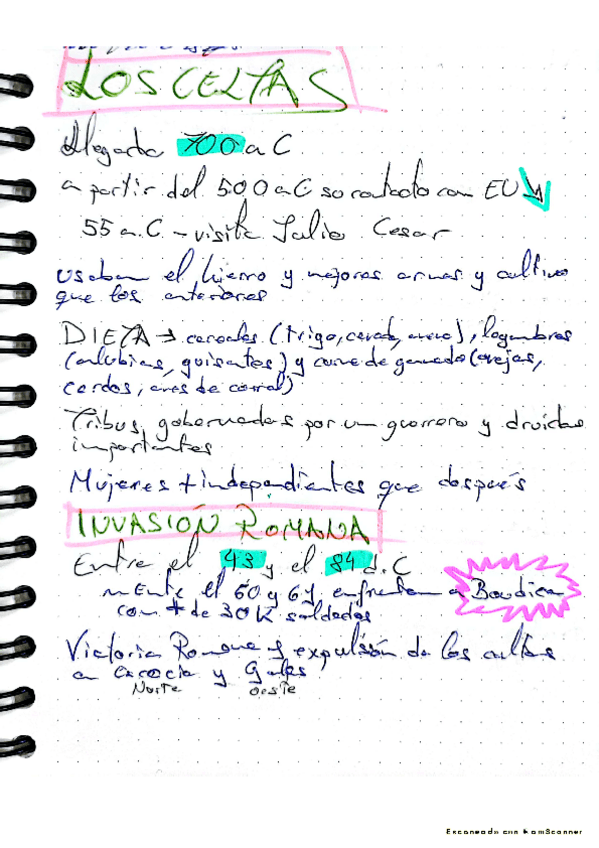 LOS CELTAS
Llegada 700 a C
a partir del 500 a C su contacto con EU
55 a.C. - visita Julio Cesar
usaban el hierro y mejores armas y cultivo
que los anteriores
DIETA → cereales (trigo, cebada, avena), legumbres
(alubias, guisantes) y carne de ganado (ovejas,
cerdos, aves de corral)
Tribus, gobernadas por un guerrero y druidas
importantes
Mujeres + independientes que después
INVASIÓN ROMANA
Entre el 43 y el 84 d.C
entre el 60 y 61, enfrentan a Boudica
con + de 30K soldados
Victoria Romana y expulsión de los celtas
a Escocia y Gales
Norte oeste
Escaneado con CamScanner